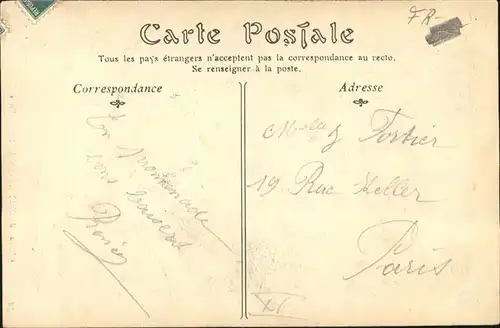 FR-
Carte Postale
Tous les pays étrangers n'acceptent pas la correspondance au recto.
Se renseigner à la poste.
Correspondance
Adresse
En promenade
bons baisers
Renée
Fortier
19 Rue Keller
Paris
XI